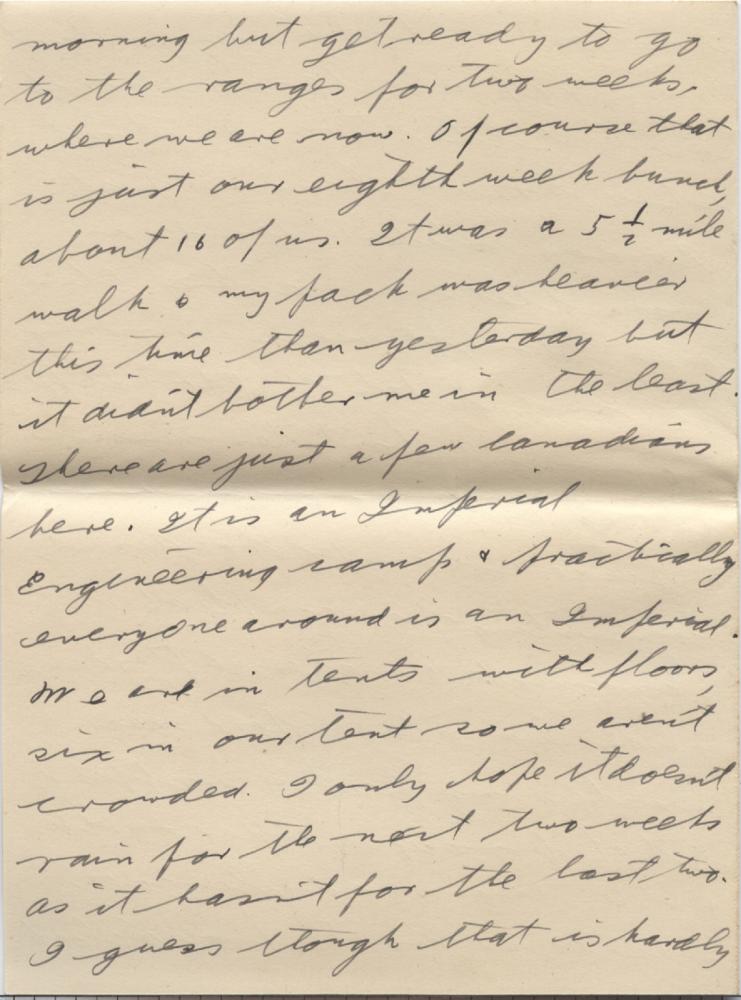 morning but get ready to go
to the ranges for two weeks,
where we are now. Of course that
is just our eighth week bunch,
about 16 of us. It was a 5 1/2 mile
walk & my pack was heavier
this time than yesterday but
it didn't bother me in the least.
There are just a few Canadians
here. It is an Imperial
Engineering camp & practically
everyone around is an Imperial.
We are in tents with floors,
six in our tent so we aren't
crowded. I only hope it doesn't
rain for the next two weeks
as it hasn't for the last two.
I guess though that is hardly